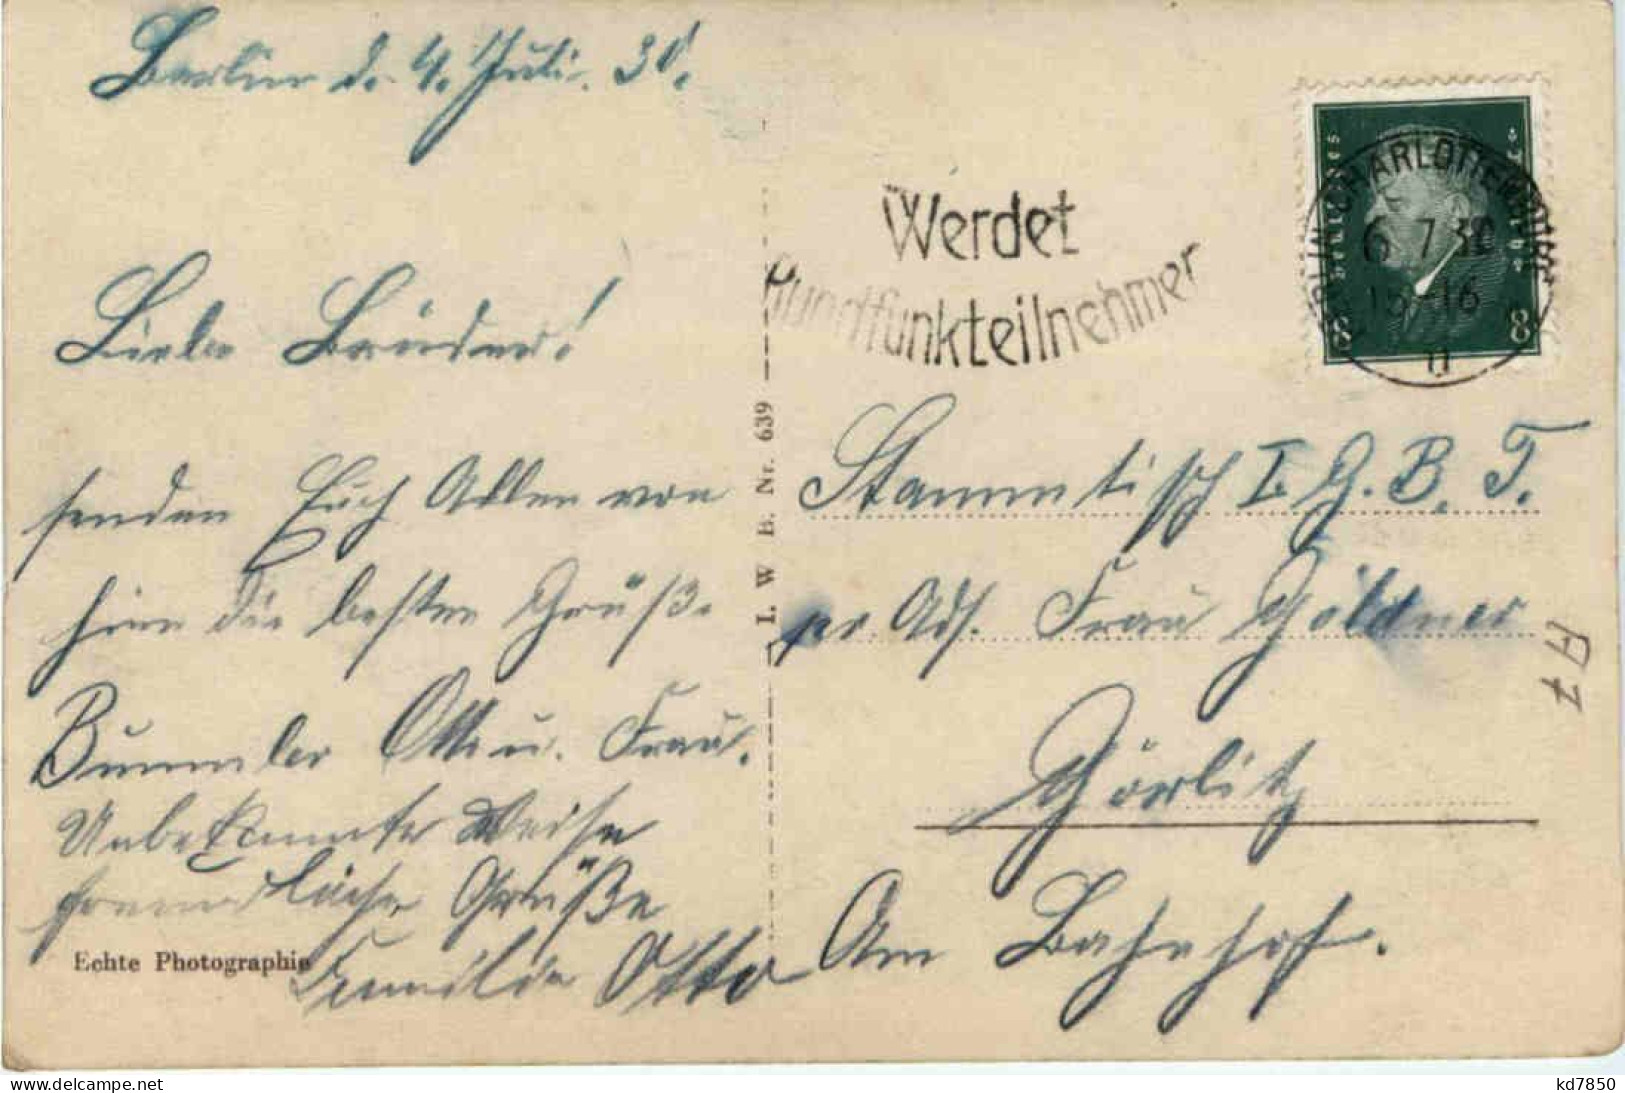 Berlin d. 4. Juli. 30.
Liebe Brüder!
senden Euch Allen von
hier die besten Grüße
Bummler Otto u. Frau.
Unbekannter Weise
freundliche Grüße
Otto
Echte Photographie
I. W. B. Nr. 639
Werdet
Rundfunkteilnehmer
Deutsches Reich
8 8
BERLIN-CHARLOTTENBURG
6.7.30
15-16
n
Stammtisch I. G. B. T.
pr Adr. Frau Göldner
Görlitz
Am Bahnhof.
A7
kd7850